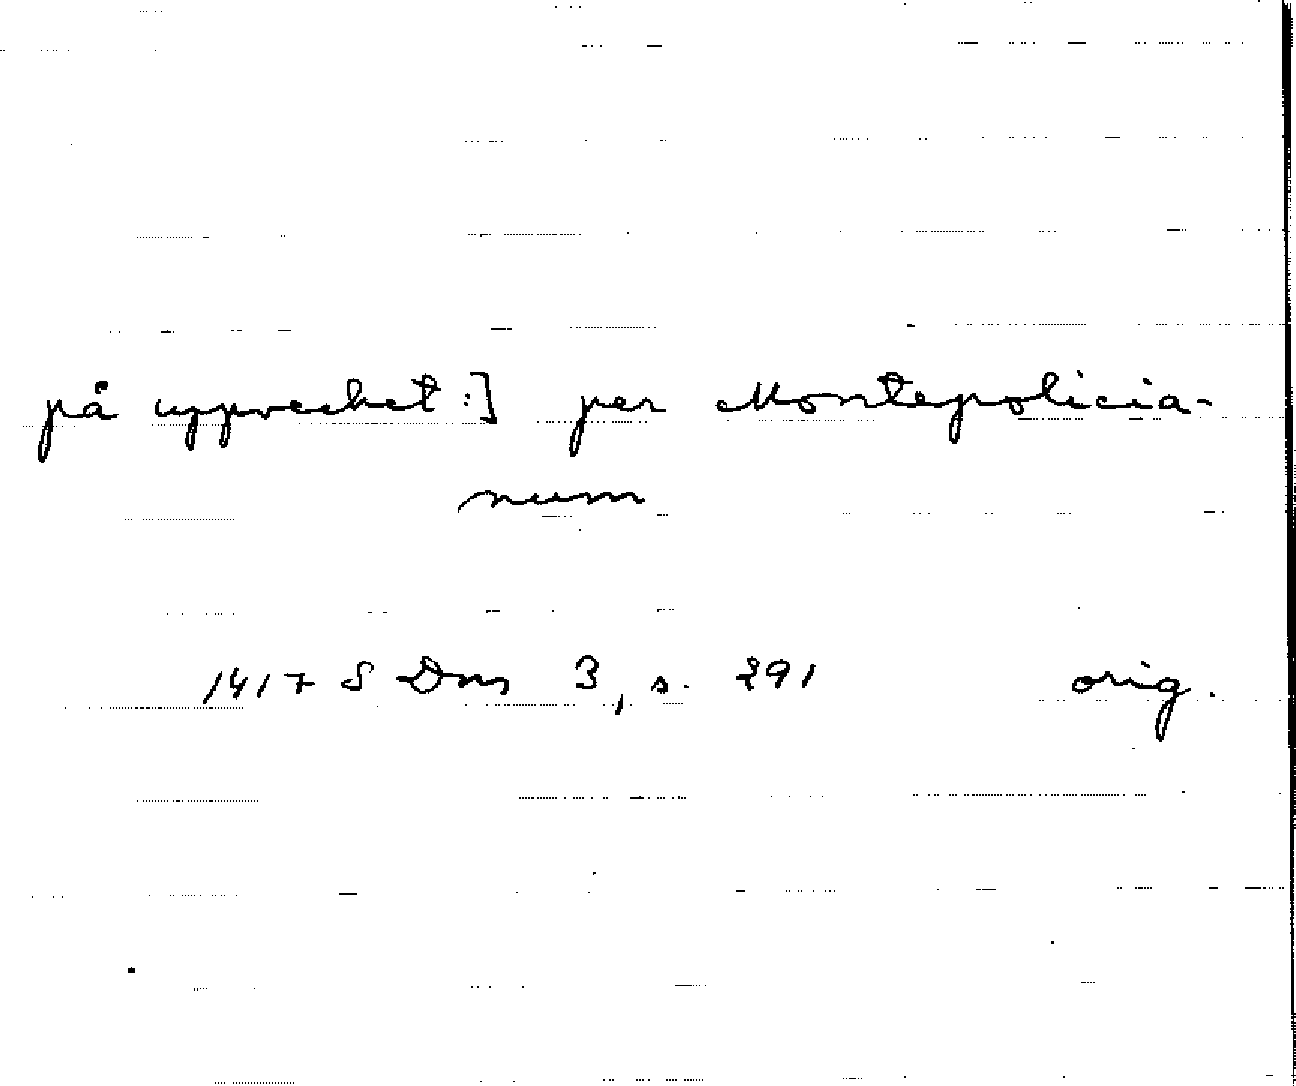 på uppvecket:] per Montepolicia-
num
1417 S Dns 3, s. 291 orig.